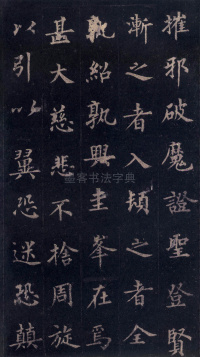 摧邪破魔證聖登賢
漸之者入頓之者全
孰紹孰興圭峯在焉
甚大慈悲不捨周旋
以引以翼恐迷恐顛
墨客书法字典